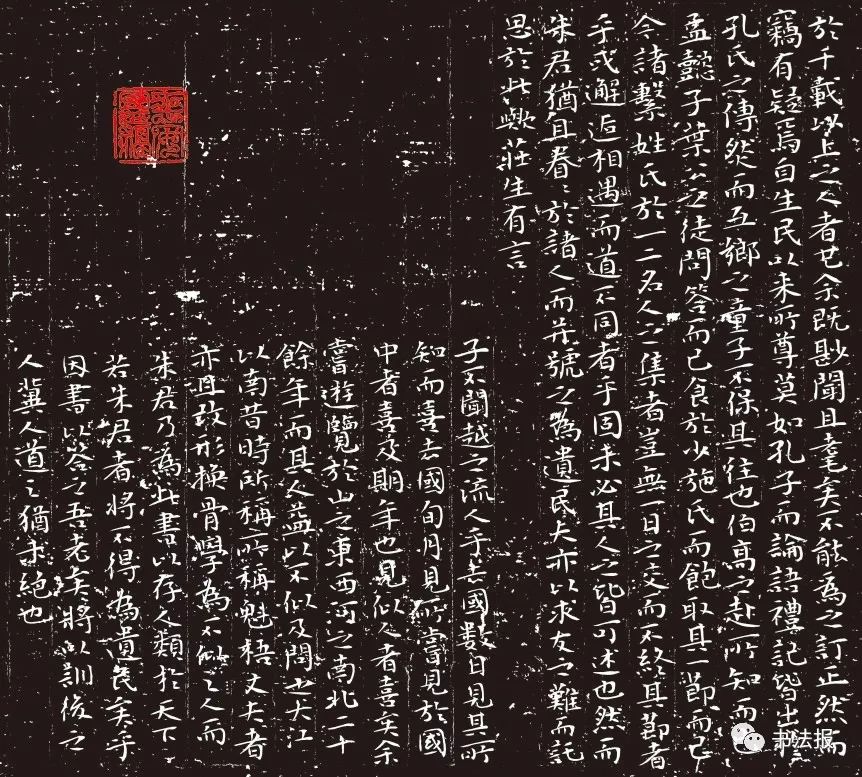 於千載以上之人者乎余既尠聞且耄矣不能為之訂正然而
竊有疑焉自生民以來所尊莫如孔子而論語禮記皆出於
孔氏之傳然而互鄉之童子不保其往也伯高之赴所知而已
孟懿子葉公之徒問答而已食於少施氏而飽取其一節而已
今諸繫姓氏於一二名人之集者豈無一日之交而不終其節者
乎或邂逅相遇而道不同者乎固未必其人之皆可述也然而
朱君猶且眷眷於諸人而并號之為遺民夫亦以求友之難而託
思於此歟莊生有言
子不聞越之流人乎去國數日見其所
知而喜去國旬月見所嘗見於國
中者喜及期年也見似人者喜矣余
嘗遊覽於山之東西河之南北二十
餘年而其人益以不似及問之大江
以南昔時所稱所稱魁梧丈夫者
亦且改形換骨學為不似之人而
朱君乃為此書以存人類於天下
若朱君者將不得為遺民矣乎
因書以答之吾老矣將以訓後之
人冀人道之猶未絕也
书法报